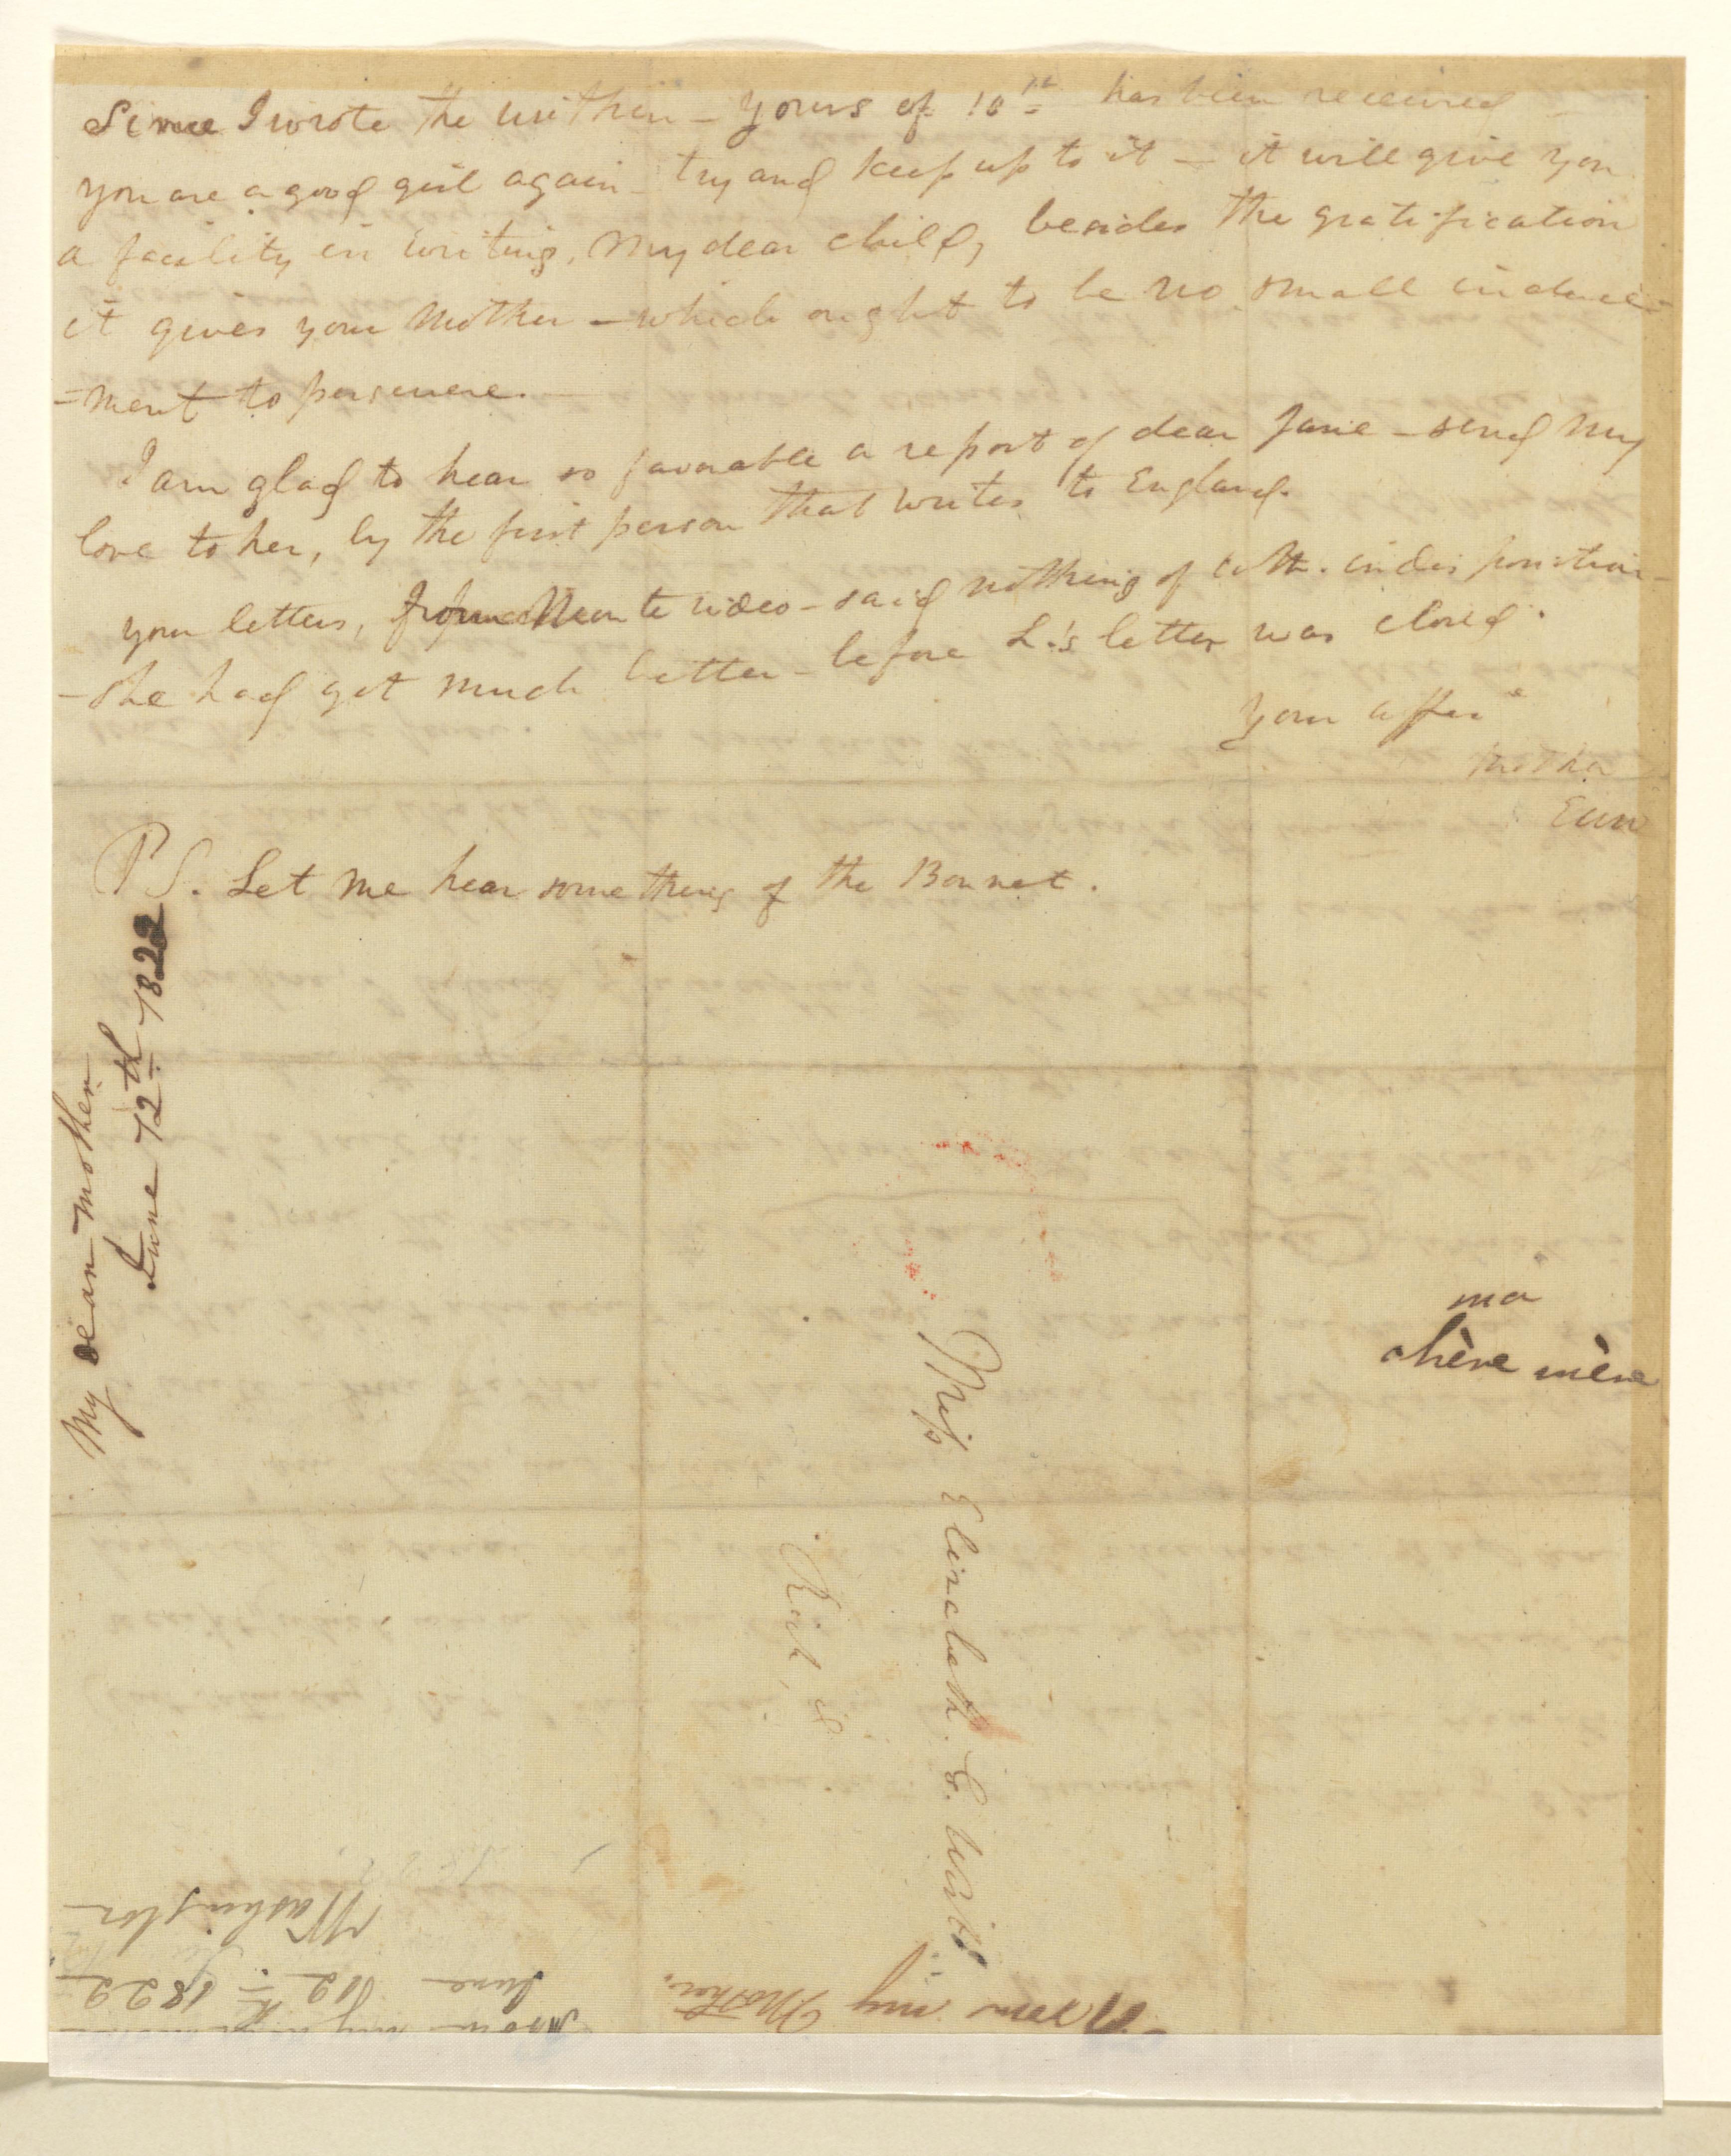 Since I wrote the within - yours of 10th has been received -
you are a good girl again - try and keep up to it - it will give you
a facility in writing, my dear child, besides the gratification
it gives your Mother - which ought to be no small induce=
=ment to persevere. -
I am glad to hear so favorable a report of dear Jane - send my
love to her, by the first person that writes to England.
your letters, from Monte video - said nothing of indisposition -
- She had got much better - before L.'s letter was closed.
Your affecte
Mother
EWW
PS. Let me hear something of the Bonnet.
My dear Mother
June 12th 1822
ma
chère mère
Miss Elizabeth G. Wirt
Richd,
From my Mother.
June 12th 1822
Washington